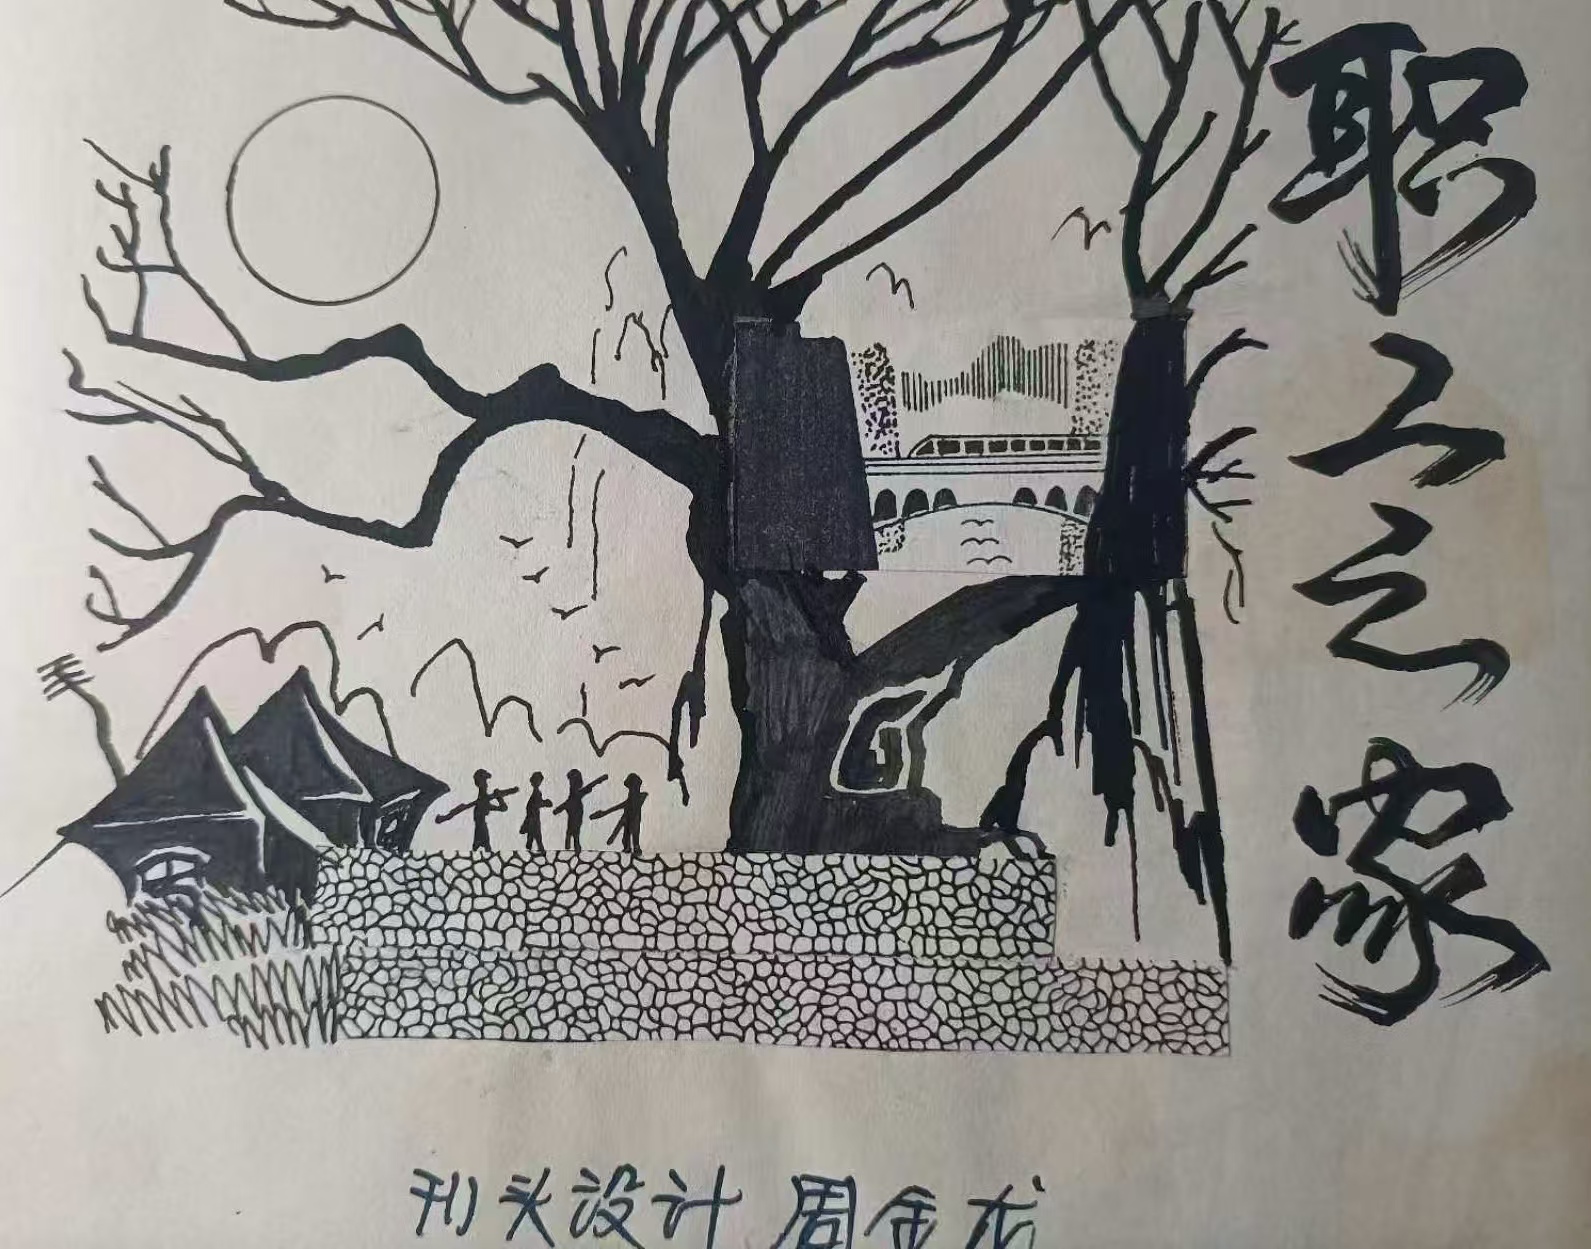 职工之家
刊头设计 周金龙